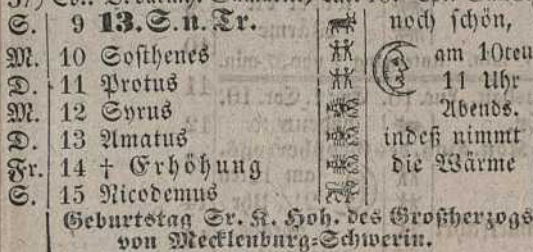 S. 9 13. S. n. Tr. noch schön,
M. 10 Sosthenes am 10ten
D. 11 Protus 11 Uhr
M. 12 Syrus Abends.
D. 13 Amatus indeß nimmt
Fr. 14 † Erhöhung die Wärme
S. 15 Nicodemus
Geburtstag Sr. K. Hoh. des Großherzogs
von Mecklenburg-Schwerin.